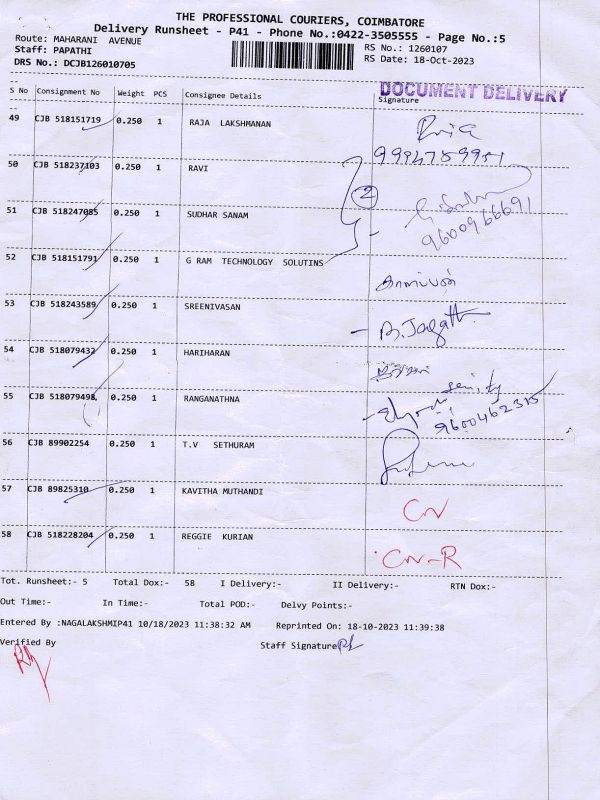 THE PROFESSIONAL COURIERS, COIMBATORE
Delivery Runsheet - P41 - Phone No.:0422-3505555 - Page No.:5
Route: MAHARANI AVENUE RS No.: 1260107
Staff: PAPATHI RS Date: 18-Oct-2023
DRS No.: DCJB126010705
DOCUMENT DELIVERY
S No Consignment No Weight PCS Consignee Details Signature
49 CJB 518151719 0.250 1 RAJA LAKSHMANAN
9994759951
50 CJB 518237103 0.250 1 RAVI
2
51 CJB 518247085 0.250 1 SUDHAR SANAM
9600966691
52 CJB 518151791 0.250 1 G RAM TECHNOLOGY SOLUTINS
53 CJB 518243589 0.250 1 SREENIVASAN
54 CJB 518079432 0.250 1 HARIHARAN
55 CJB 518079498 0.250 1 RANGANATHNA
9600462315
56 CJB 89902254 0.250 1 T.V SETHURAM
57 CJB 89825310 0.250 1 KAVITHA MUTHANDI
58 CJB 518228204 0.250 1 REGGIE KURIAN
Tot. Runsheet:- 5 Total Dox:- 58 I Delivery:- II Delivery:- RTN Dox:-
Out Time:- In Time:- Total POD:- Delvy Points:-
Entered By :NAGALAKSHMIP41 10/18/2023 11:38:32 AM Reprinted On: 18-10-2023 11:39:38
Verified By Staff Signature